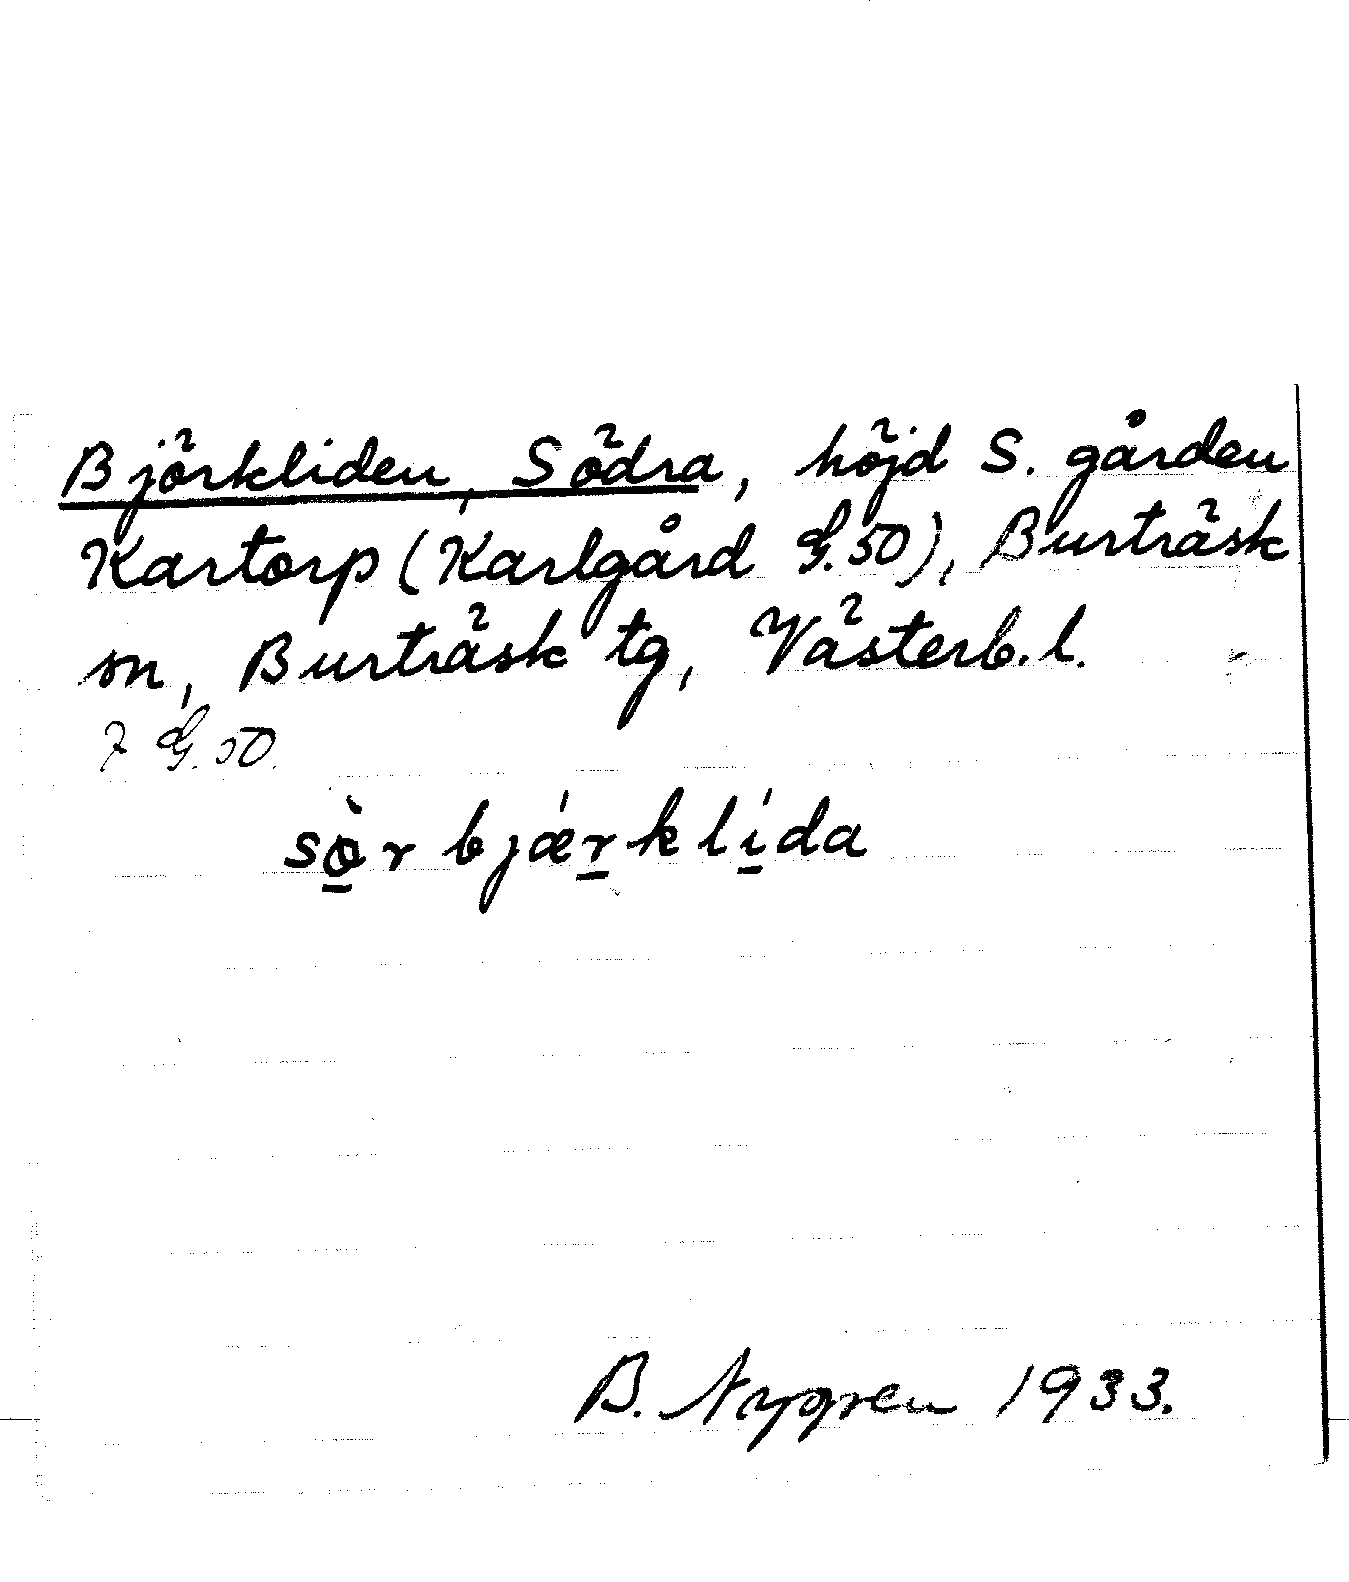 Björkliden, Södra, höjd S. gården
Kartorp (Karlgård G.50), Burträsk
sn, Burträsk tg, Västerb.l.
7 G.50.
sø̱̀r bjǽṟklí̱da
B. Nygren 1933.